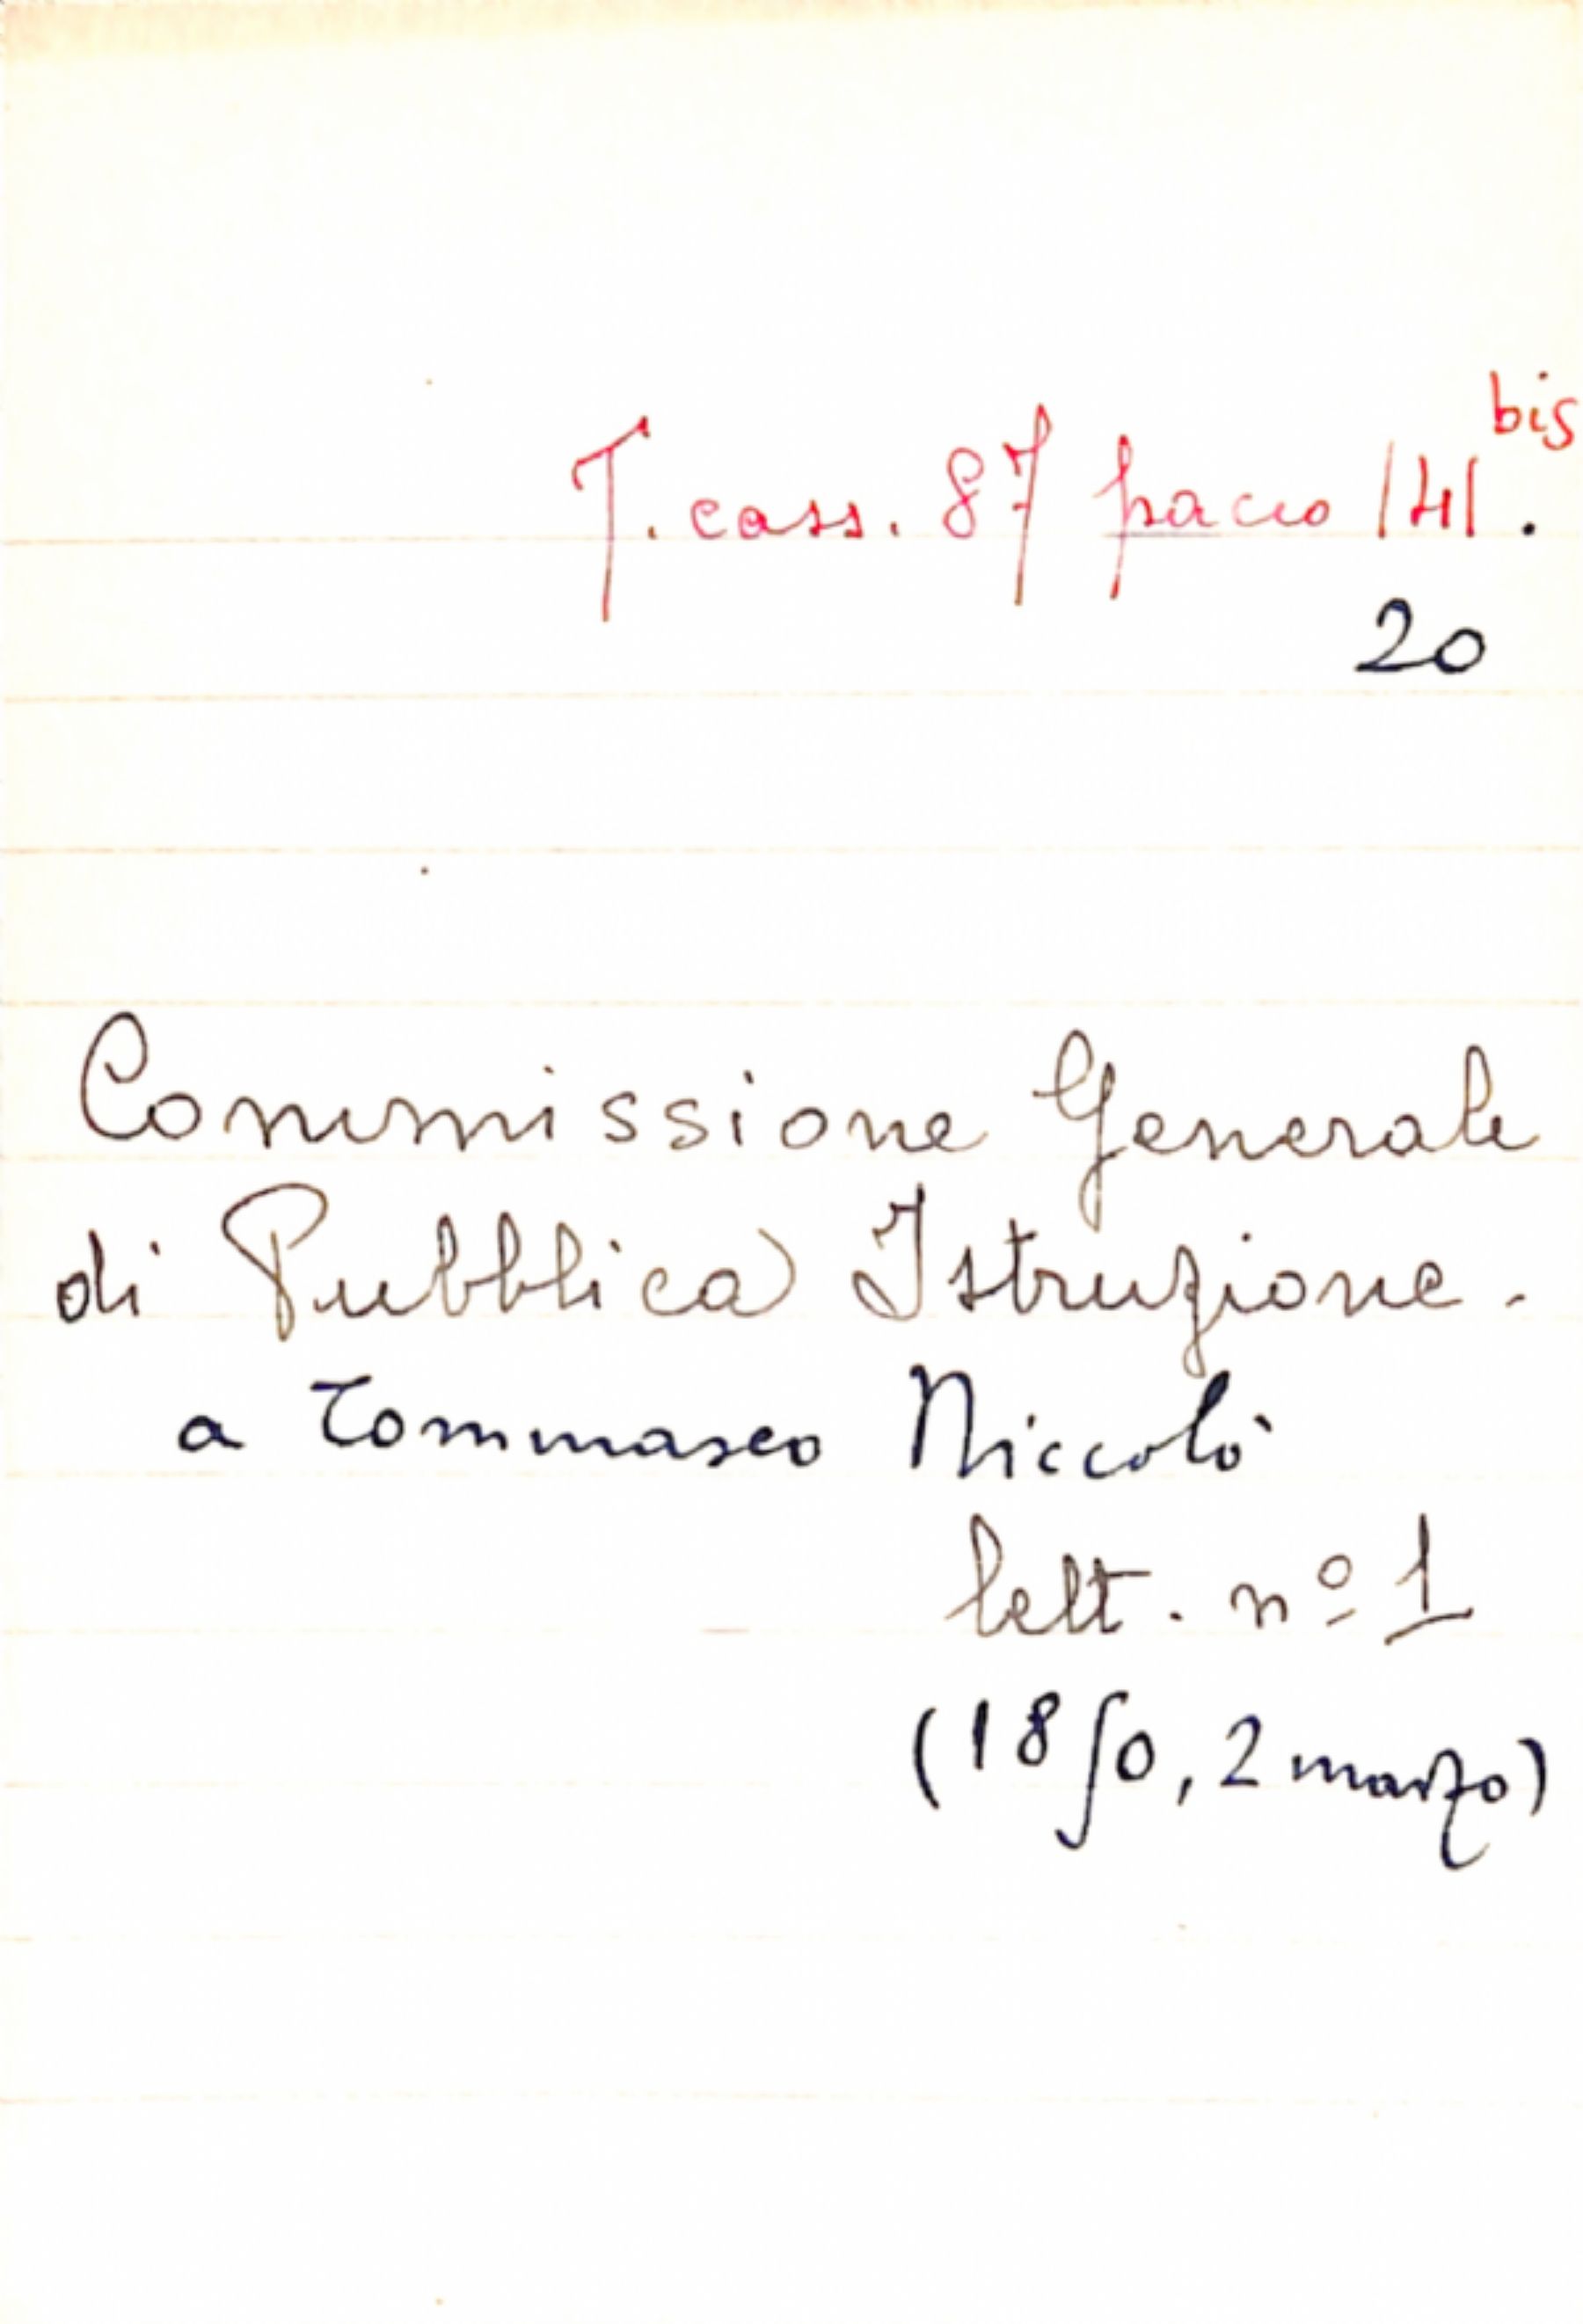 T. cass. 87 pacco 141 bis.
20
Commissione Generale
di Pubblica Istruzione.
a Tommaseo Niccolò
lett. nº 1
(1850, 2 marzo)